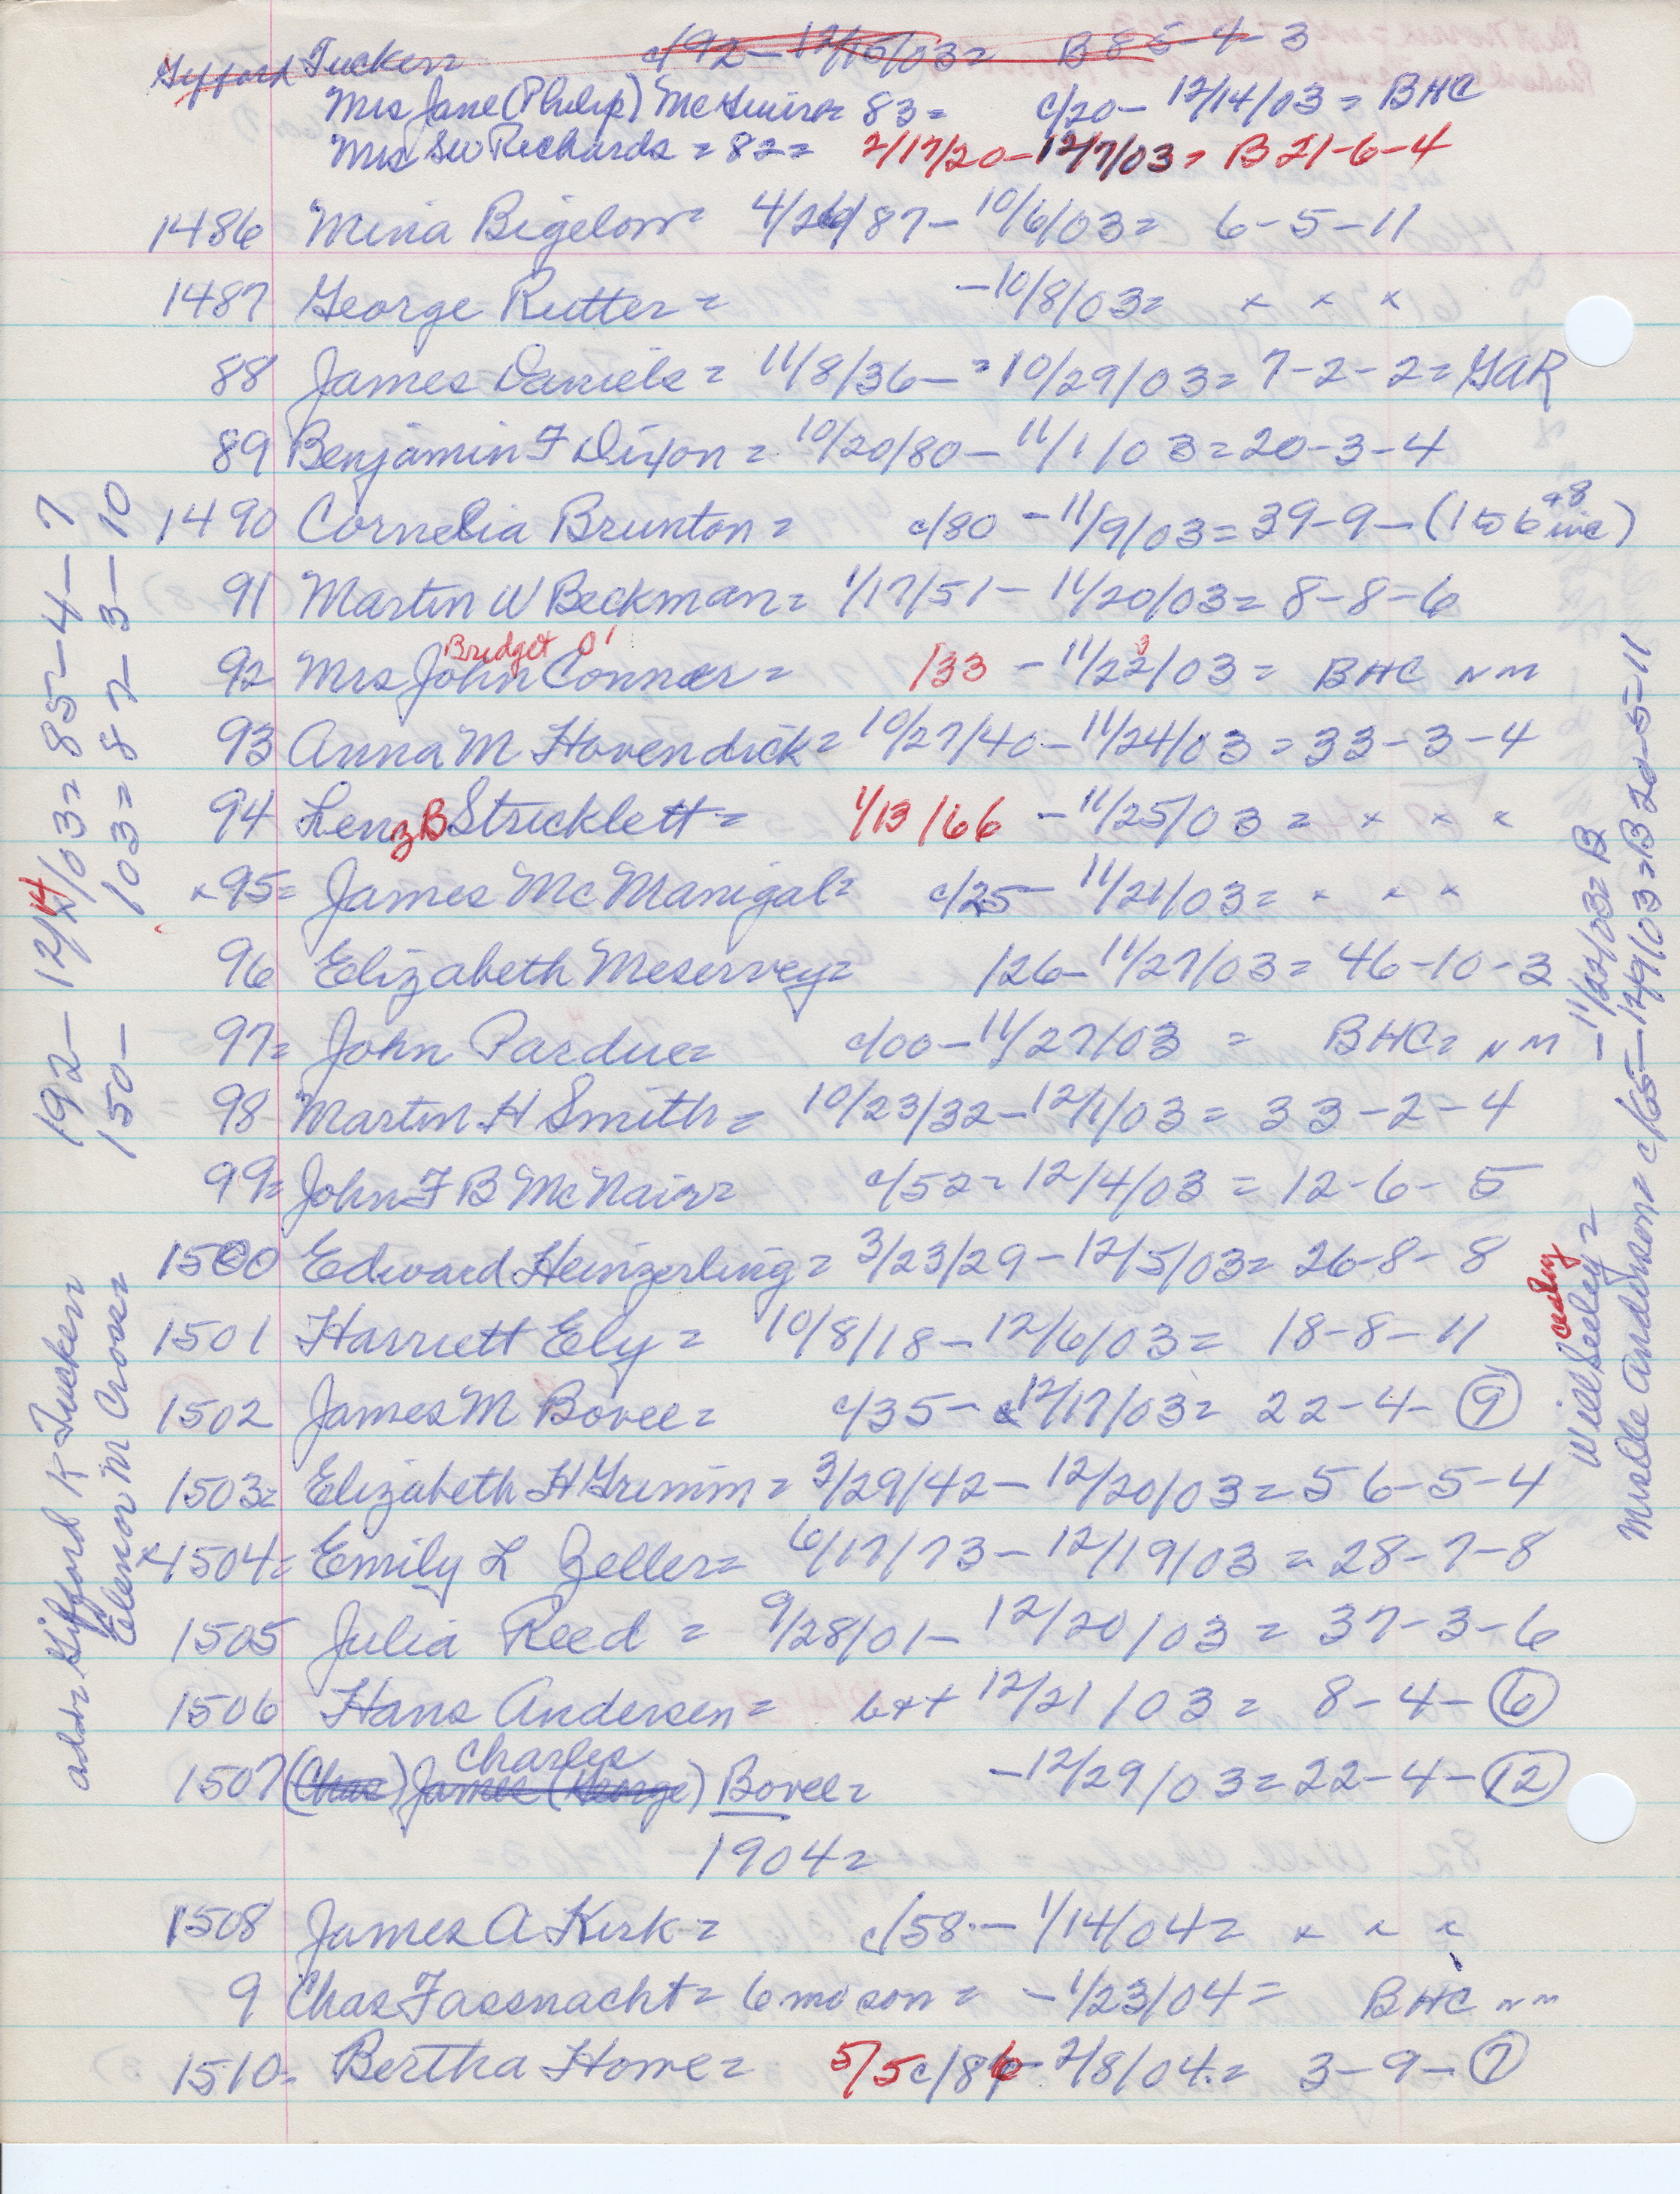 Gifford Tucker= c/92-12/15/03= B 85-4-3
Mrs Jane (Philip) McGuire= 83= c/20- 12/14/03= BHC
Mrs Geo Richards = 82= 2/17/20-12/7/03= B 21-6-4
1486 Mina Bigelow= 4/26/87- 10/6/03= 6-5-11
1487 George Rutter= -10/8/03= x x x
88 James Daniels= 11/8/36- =10/29/03= 7-2-2= GAR
89 Benjamin F Dixon= 10/20/80- 11/1/03=20-3-4
1490 Cornelia Brunton= c/80 -11/9/03=39-9-(1 to 6 +8 inc)
91 Martin W Beckman= 1/17/51- 11/20/03= 8-8-6
Bridget O'
92 Mrs John Conner= /33 -11/23/03= BHC nm
93 Anna M Hovendick= 10/27/40-11/24/03=33-3-4
94 Lenz B Stricklett= 1/13/66 -11/25/03= x x x
x 95= James McManigal= c/25- 11/21/03= x x x
96 Elizabeth Meservey= /26- 11/27/03= 46-10-3
97= John Pardue= c/00-11/27/03 = BHC= nm
98 Martin H Smith= 10/23/32-12/1/03= 33-2-4
99= John F B McNair= c/52= 12/4/03 = 12-6-5
1500 Edward Heinzerling= 3/23/29-12/5/03= 26-8-8
1501 Harriett Ely= 10/8/18-12/6/03= 18-8-11
1502 James M Bovee= c/35- 12/17/03= 22-4-9
1503= Elizabeth H Grimm= 3/29/42- 12/20/03=56-5-4
x1504= Emily L Zeller= 6/17/73-12/19/03=28-7-8
1505 Julia Reed = 9/28/01- 12/20/03= 37-3-6
1506 Hans Andersen= 12/21/03= 8-4-6
Charles
1507 (Chas) James (George) Bovee= -12/29/03=22-4-12
1904=
1508 James A Kirk= c/58- 1/14/04= x x x
9 Chas Fassnacht= 6 mo son= -1/23/04= BHC nm
1510= Bertha Howe= 5/5 c/86- 2/8/04= 3-9-7
add= Gifford K Tucker 192- 12/14/03= 85-4-7
Elenor M Cross= 150- 103= 87-3-10
cealey
Will Seeley= -11/22/03= B
Mrs Anderson= c/65-12/9/03=B 20-5-11